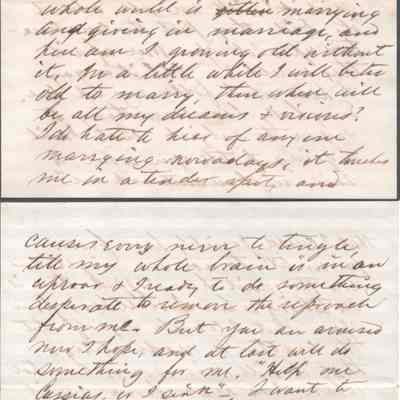 whole world is gettin marrying
and giving in marriage, and
here am I growing old without
it. In a little while I will be too
old to marry, then where will
be all my dreams & visions?
I do hate to hear of any one
marrying nowadays, it touches
me in a tender spot, and
causes every nerve to tingle,
till my whole brain is in an
uproar & I ready to do something
desperate to remove the reproach
from me. But you are aroused
now I hope, and at last will do
something for me. "Help me
Cassius, or I sink" - I want to